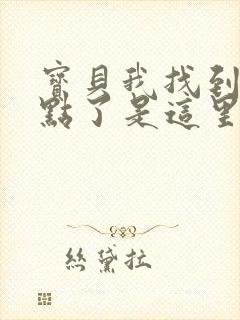 寶貝我找到
點了是這里
絲黛拉